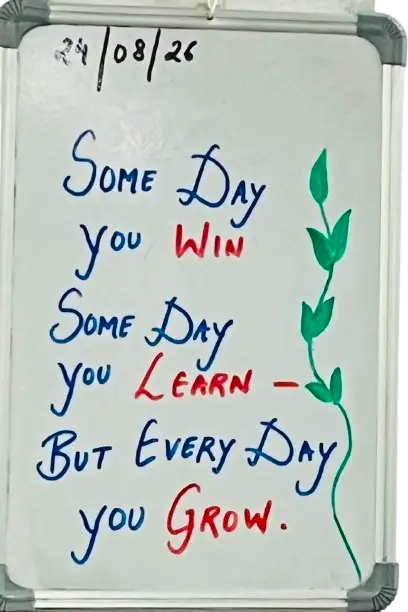 24/08/26
SOME DAY
YOU WIN
SOME DAY
YOU LEARN –
BUT EVERY DAY
YOU GROW.